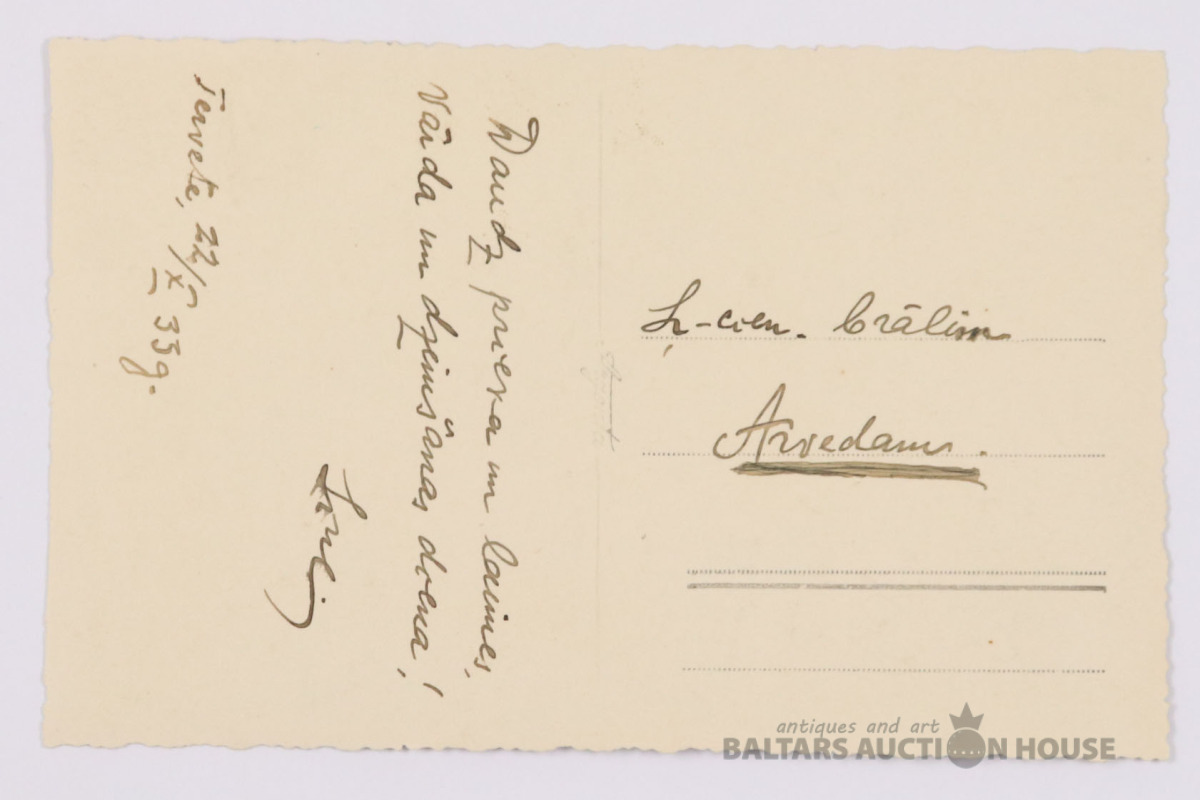 Daudz prieka un laimes,
Vārda un dzimšanas diena!
Tērvete, 22/X 35g.
Ļ-cien. brālim
Arvedam.
antiques and art
BALTARS AUCTION HOUSE